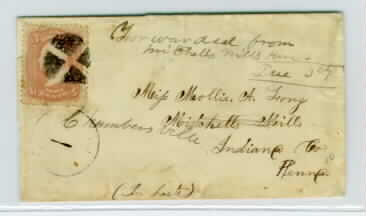 Forwarded from
Mitchells Mills
Due 3
Miss Mollie. A. Long
Chambersville
Mitchells Mills
Indiana Co
Penna
(In haste)